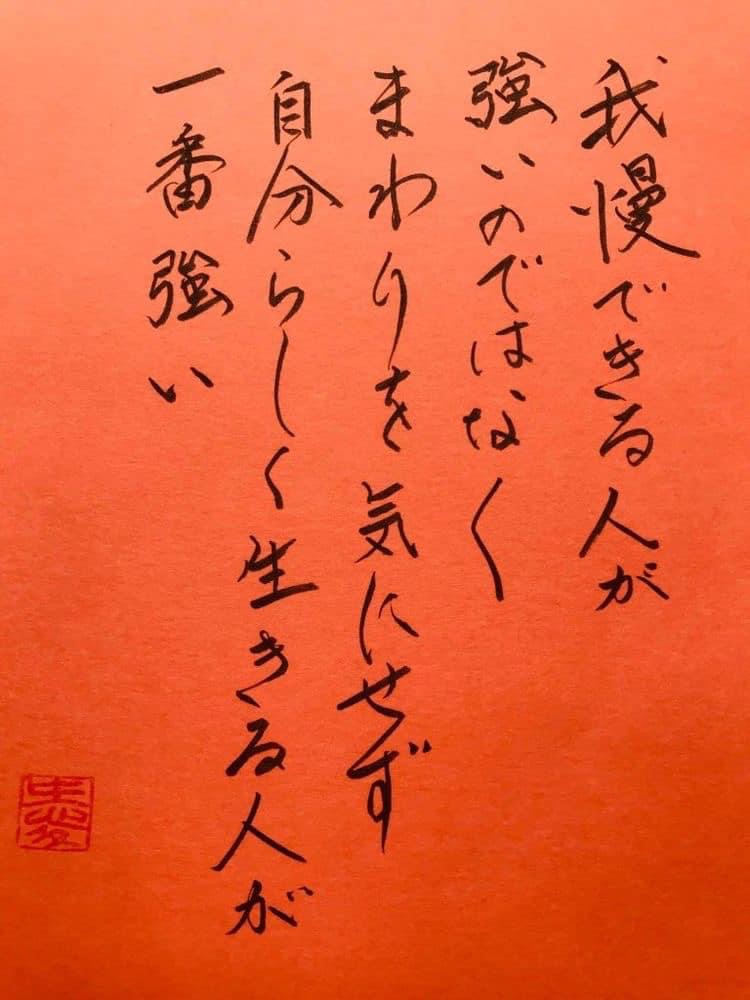 我慢できる人が
強いのではなく
まわりを気にせず
自分らしく生きる人が
一番強い